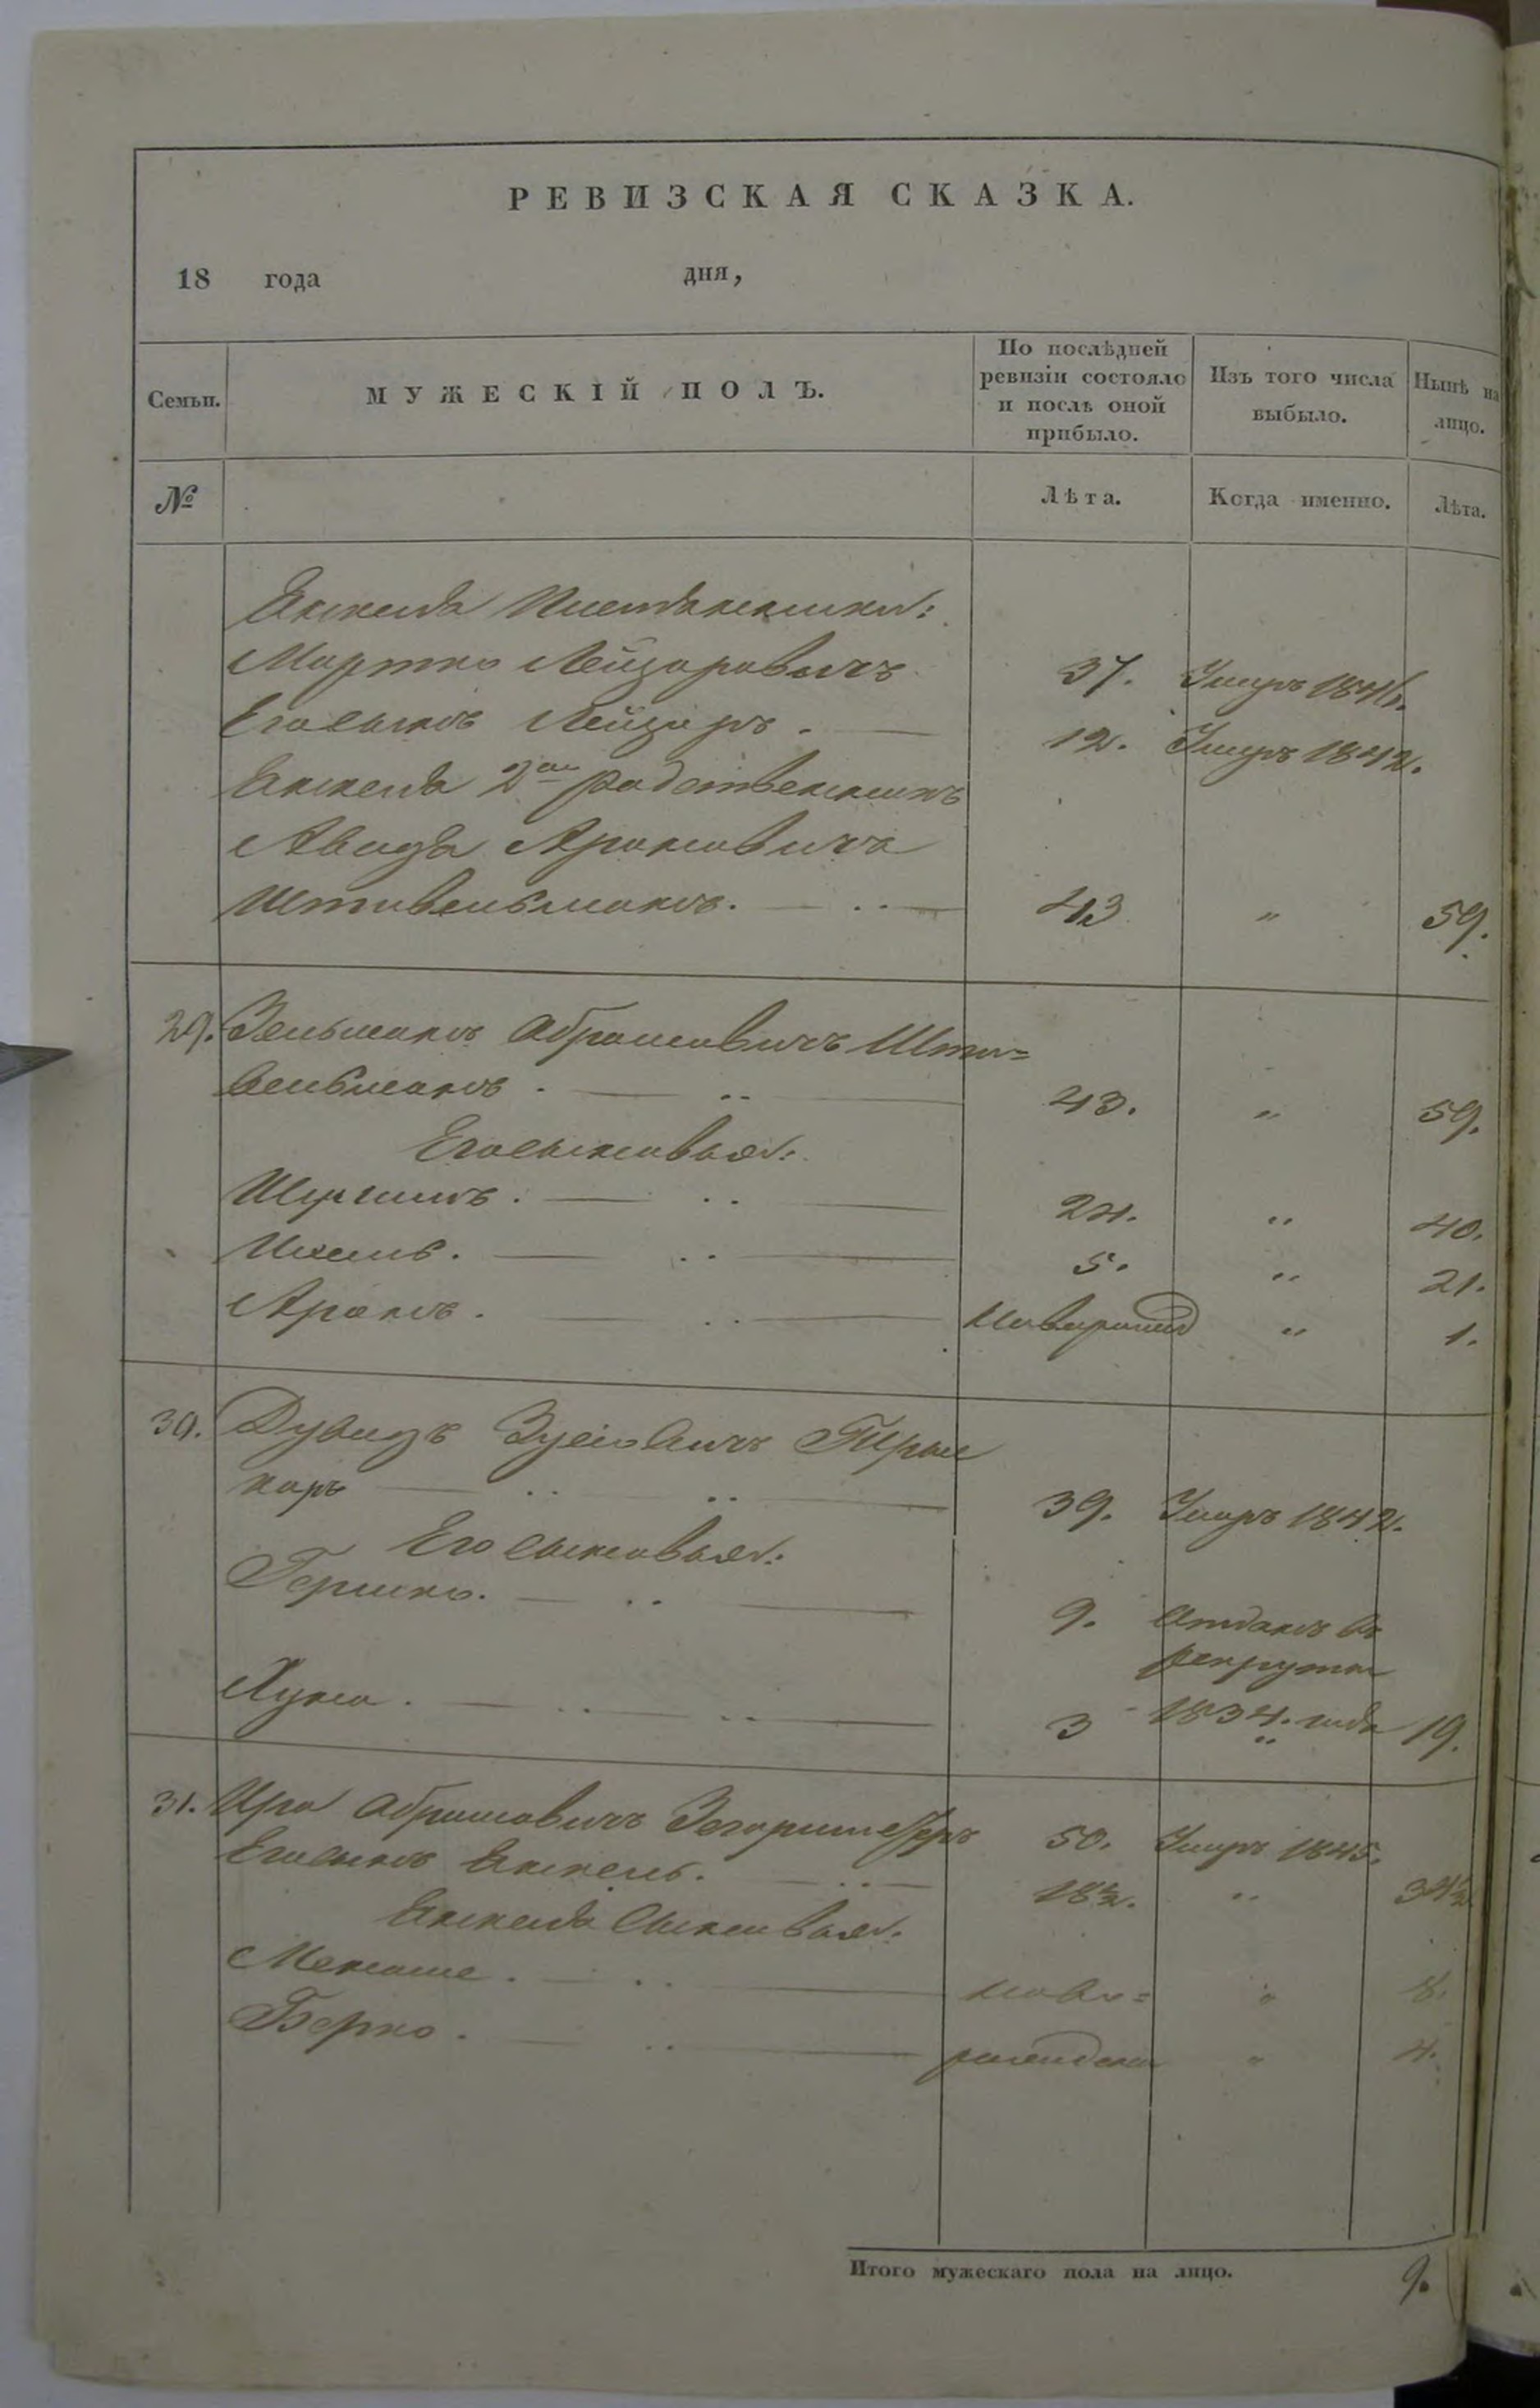 РЕВИЗСКАЯ СКАЗКА.
18 года дня,
Семьи. МУЖЕСКІЙ ПОЛЪ. По послѣдней ревизіи состояло и послѣ оной прибыло. Изъ того числа выбыло. Нынѣ на лицо.
№ Лѣта. Когда именно. Лѣта.
Янкеля
Мортко Лейзоровичъ 37. Умеръ 1841.
Его сынъ Лейзоръ. 12. Умеръ 1842.
Янкеля 2й родственникъ
Ароновича
Штивельманъ. 43 " 59.
29. Зельманъ Абрамовичъ Шти=
вельманъ. 43. " 59.
Его сыновья:
24. " 40.
Ихель. 5. " 21.
Аронъ. Новорожд " 1.
30. Дувидъ
каръ 39. Умеръ 1842.
Его сыновья:
Гершко. 9. Отданъ въ
рекруты
3 1834. года " 19.
31. Абрамовичъ 50. Умеръ 1845.
Его сынъ Янкель. 18½. " 34½
Янкеля сыновья:
Менаше. ново= " 8.
Берко. рожденн " 4.
Итого мужескаго пола на лицо. 9.